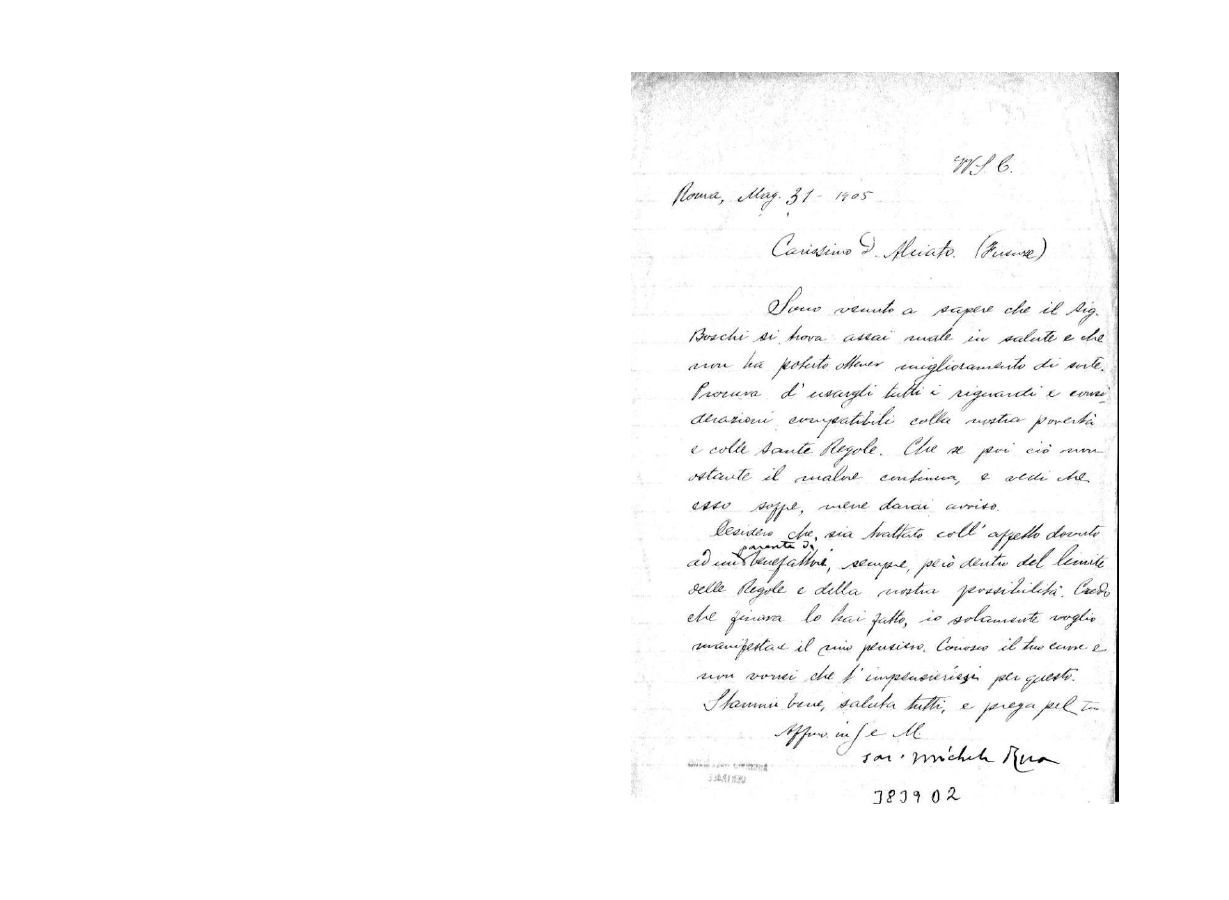 W S. C.
Roma, Mag. 31 - 1905
Carissimo D. Alciato. (Firenze)
Sono venuto a sapere che il sig.
Boschi si trova assai male in salute e che
non ha potuto ottener miglioramento di sorte.
Procura d'usargli tutti i riguardi e consi
derazioni compatibili colla nostra povertà
e colle sante Regole. Che se poi ciò non
ostante il malore continua, e vedi che
esso soffre, mene darai avviso.
Desidero che, sia trattato coll'affetto dovuto
parente di
ad un benefattore, sempre, però dentro del limite
delle Regole e della nostra possibilità. Credo
che finora lo hai fatto, io solamente voglio
manifestare il mio pensiero. Conosco il tuo cuore e
non vorrei che t'impensierissi per questo.
Stammi bene, saluta tutti, e prega pel tuo
Affmo. in G e M
Sac. Michele Rua
383902